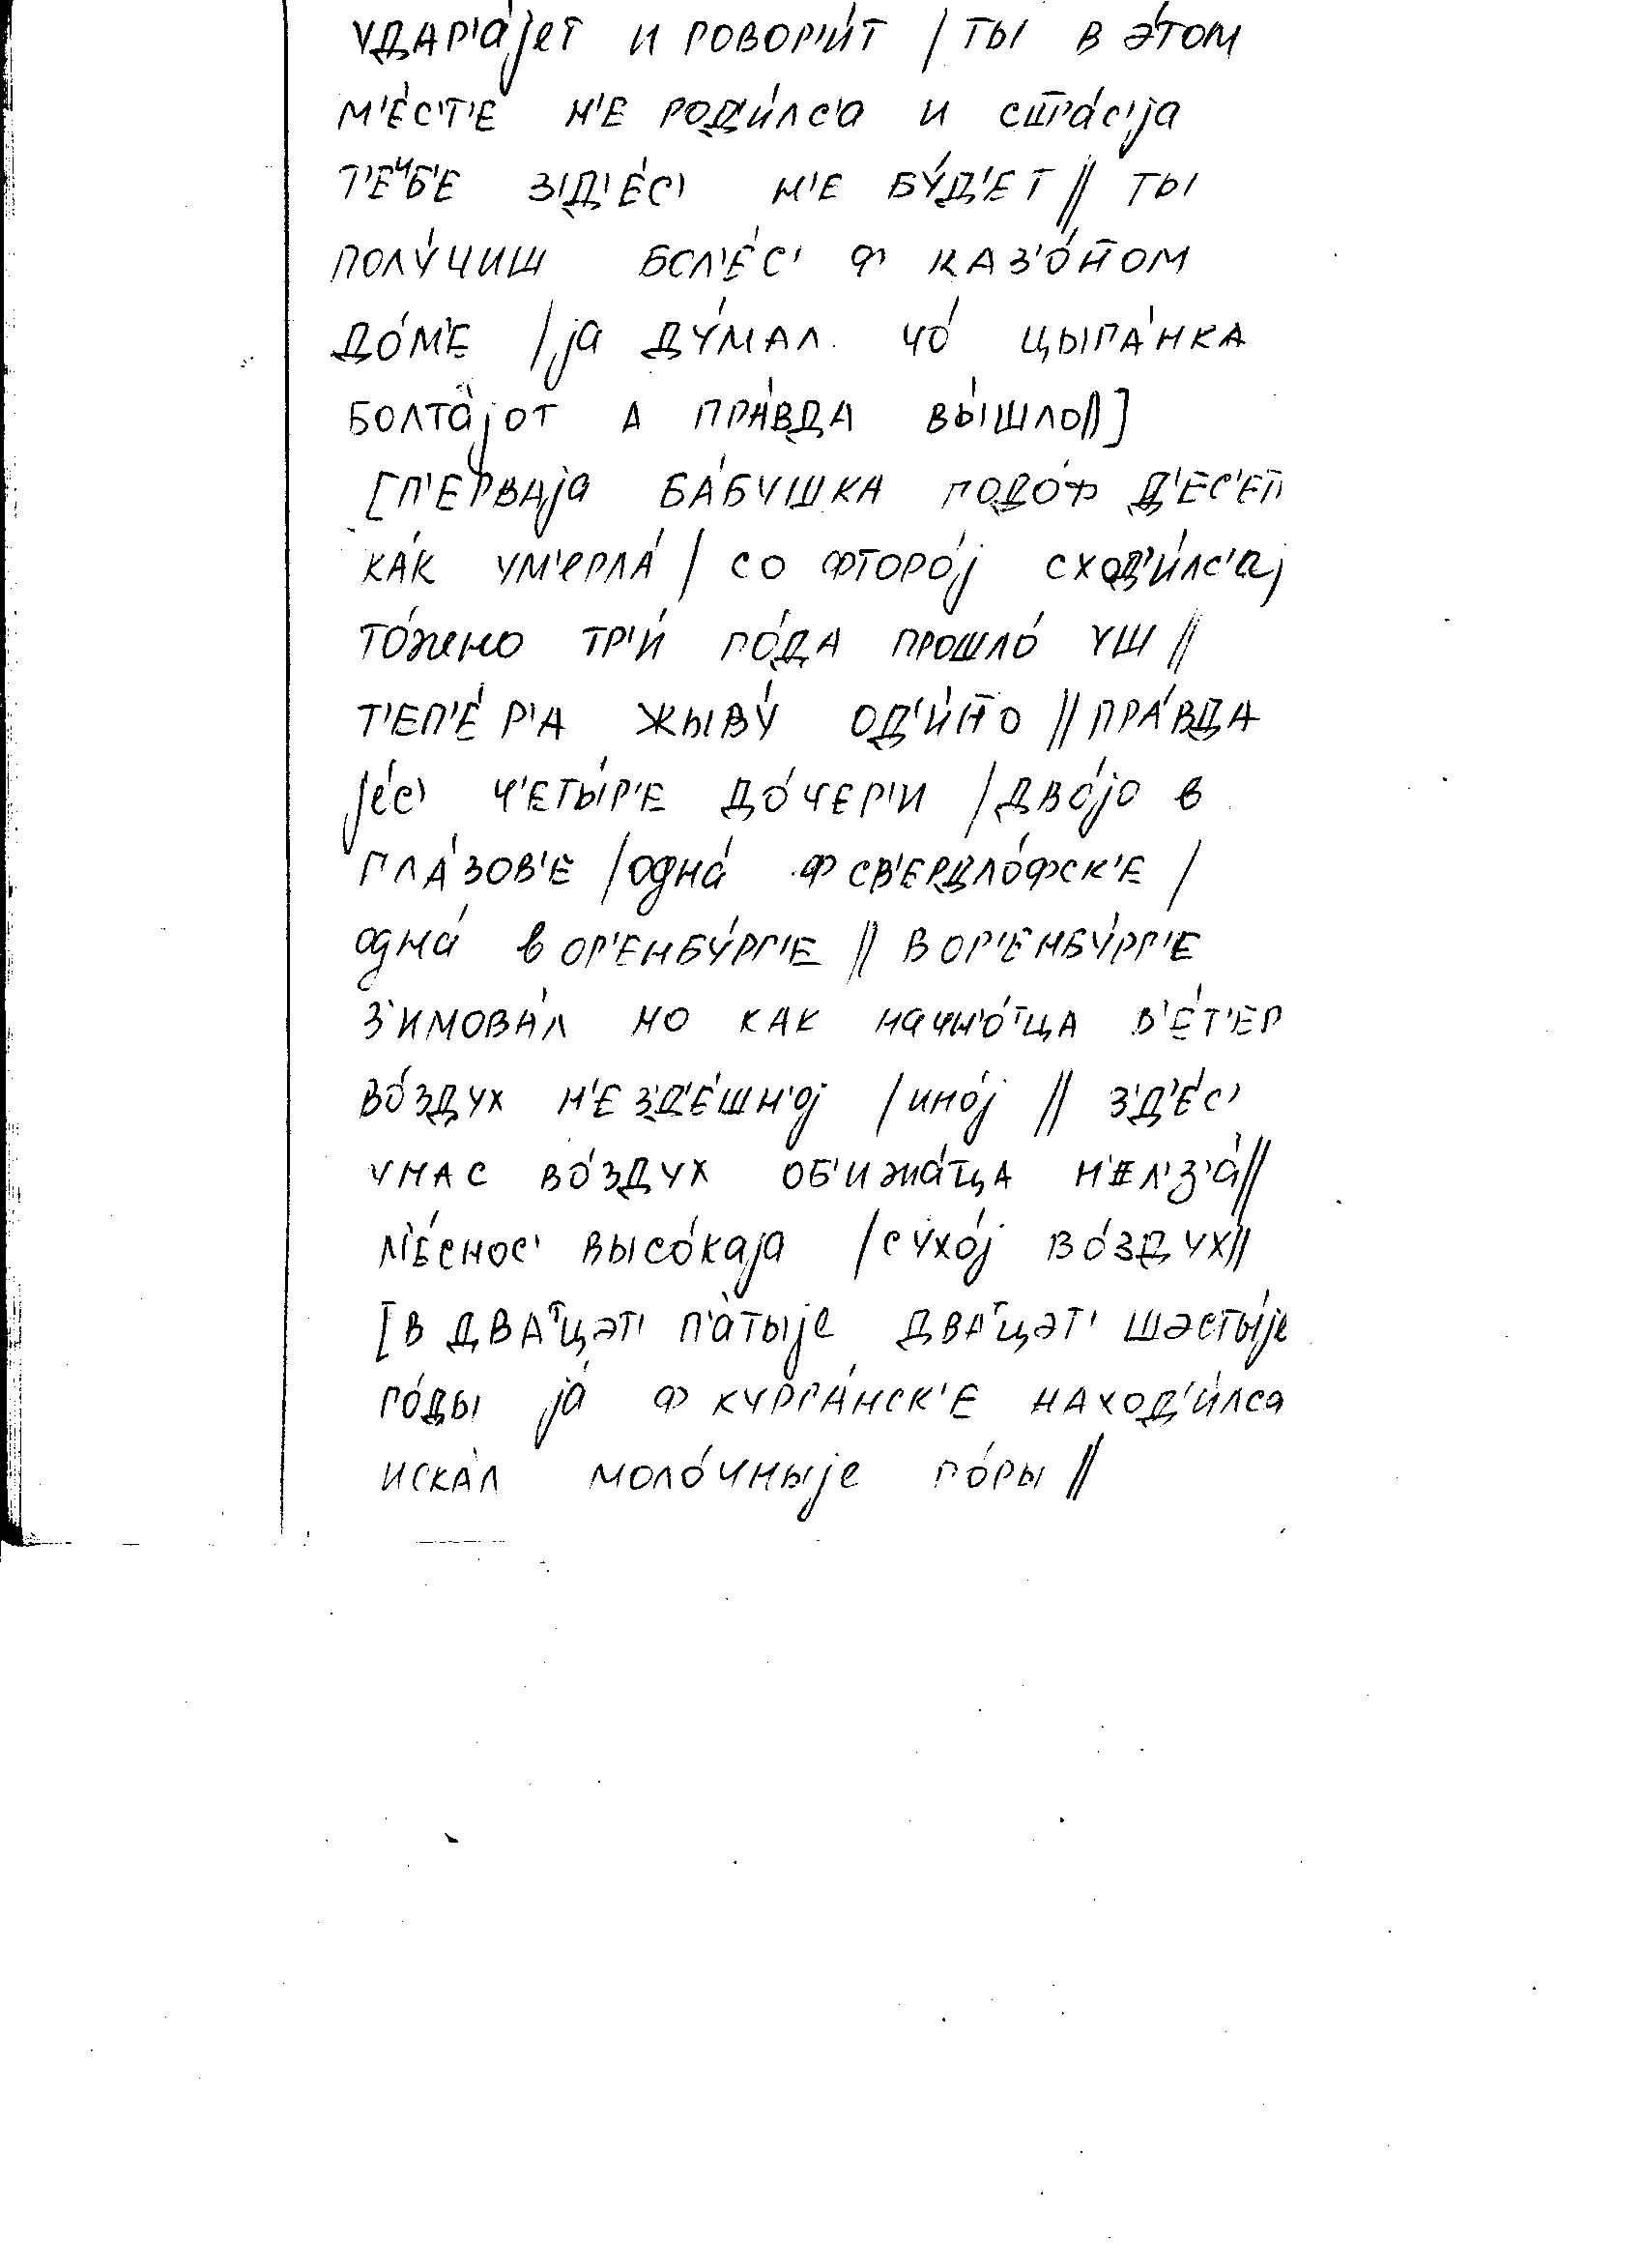 удар'а́јет и говор'и́т / ты в э́том
м'е́с'т'е н'е род'и́лс'а и стра́с'ја
т'еб'е з'д'е́с' н'е бу́д'ет // ты
полу́чиш бол'е́с' ф каз'о́н̄ом
до́м'е / ја ду́мал чо́ цыга́нка
болта́јот а пра́вда вы́шло //]
[п'е́рваја ба́бушка годо́ф д'ес'ет
ка́к ум'ерла́ / со фторо́ј сход'и́лс'ај
то́жено тр'и́ го́да прошло́ уш //
т'еп'е́р'а жыву́ од'и́н̄о // пра́вда
је́с' ч'еты́р'е до́чер'и / дво́јо в
гла́зов'е / одна́ ф св'ердло́фск'е /
одна́ в ор'енбу́рг'е // в ор'енбу́рг'е
з'имова́л но как начн'о́тца в'е́т'ер
во́здух н'е з'д'е́шн'ој / ино́ј // з'д'е́с'
у нас во́здух об'ижа́тца н'ел'з'а́ //
м'е́снос' высо́каја / сухо́ј во́здух //
[в два́тцэт' п'а́тыје два́тцэт' шэсты́је
го́ды ја́ ф курга́нск'е наход'и́лса
иска́л моло́чныје го́ры //